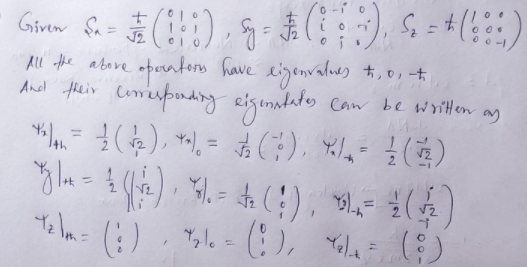 Given S_x = ħ/√2 ( 0 1 0 ; 1 0 1 ; 0 1 0 ), S_y = ħ/√2 ( 0 -i 0 ; i 0 -i ; 0 i 0 ), S_z = ħ ( 1 0 0 ; 0 0 0 ; 0 0 -1 )
All the above operators have eigenvalues ħ, 0, -ħ
And their corresponding eigenstates can be written as
Ψ_x|_{+ħ} = 1/2 ( 1 ; √2 ; 1 ), Ψ_x|_0 = 1/√2 ( -1 ; 0 ; 1 ), Ψ_x|_{-ħ} = 1/2 ( -1 ; √2 ; -1 )
Ψ_y|_{+ħ} = 1/2 ( i ; √2 ; i ), Ψ_y|_0 = 1/√2 ( 1 ; 0 ; 1 ), Ψ_y|_{-ħ} = 1/2 ( i ; √2 ; -i )
Ψ_z|_{+ħ} = ( 1 ; 0 ; 0 ), Ψ_z|_0 = ( 0 ; 1 ; 0 ), Ψ_z|_{-ħ} = ( 0 ; 0 ; 1 )